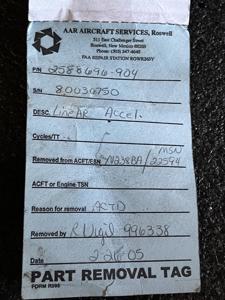 AAR AIRCRAFT SERVICES, Roswell
511 East Challenger Street
Roswell, New Mexico 88203
Phone: (505) 347-4645
FAA REPAIR STATION
P/N 2588696-904
S/N 80030750
DESC. LineAR Accel.
Cycles/TT
Removed from ACFT/ESN N238BA / MSN 22594
ACFT or Engine TSN
Reason for removal
Removed by R Vigil 996338
Date 2-21-05
PART REMOVAL TAG
FORM